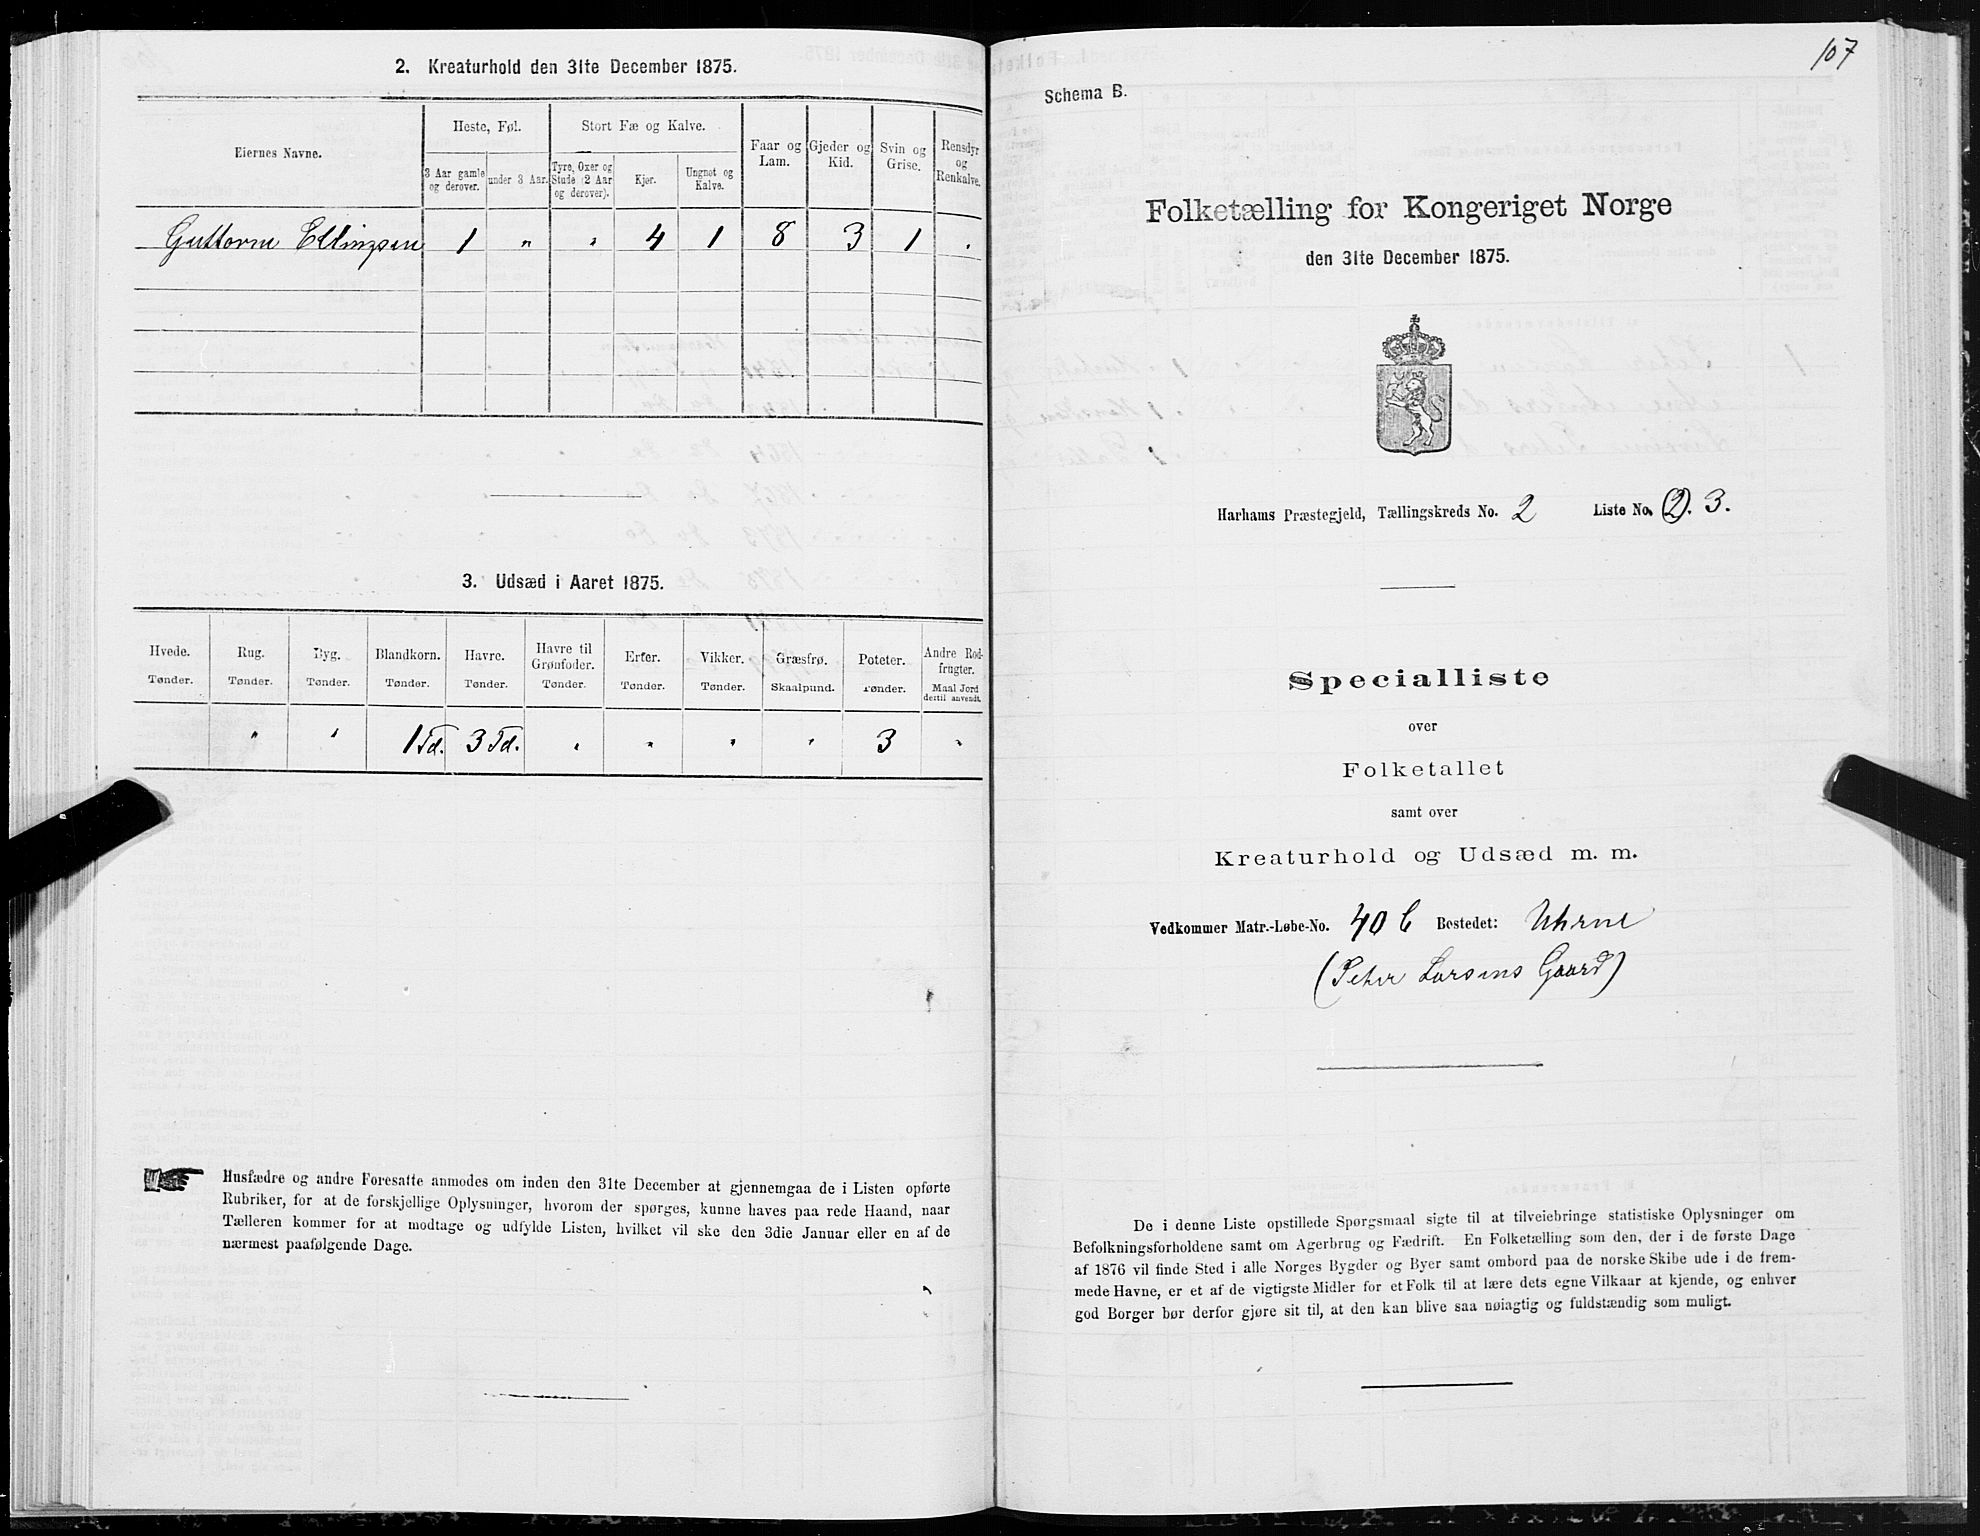 2. Kreaturhold den 31te December 1875.
Eiernes Navne.
Heste, Føl.
Stort Fæ og Kalve.
Faar og Lam.
Gjeder og Kid.
Svin og Grise.
Rensdyr og Renkalve.
3 Aar gamle og derover.
under 3 Aar.
Tyre, Oxer og Stude (2 Aar og derover).
Kjør.
Ungnøt og Kalve.
Guttorm Ellingsen 1 " " 4 1 8 3 1 .
3. Udsæd i Aaret 1875.
Hvede. Rug. Byg. Blandkorn. Havre. Havre til Grønfoder. Erter. Vikker. Græsfrø. Poteter. Andre Rodfrugter.
Tønder. Tønder. Tønder. Tønder. Tønder. Tønder. Tønder. Tønder. Skaalpund. Tønder. Maal Jord dertil anvendt.
" " 1 Td. 3 Td. " " " " 3 "
Husfædre og andre Foresatte anmodes om inden den 31te December at gjennemgaa de i Listen opførte
Rubriker, for at de forskjellige Oplysninger, hvorom der spørges, kunne haves paa rede Haand, naar
Tælleren kommer for at modtage og udfylde Listen, hvilket vil ske den 3die Januar eller en af de
nærmest paafølgende Dage.
107
Schema B.
Folketælling for Kongeriget Norge
den 31te December 1875.
Harhams Præstegjeld, Tællingskreds No. 2 Liste No. (2). 3.
Specialliste
over
Folketallet
samt over
Kreaturhold og Udsæd m. m.
Vedkommer Matr.-Løbe-No. 40 b Bostedet: Uhrne
(Peter Larsens Gaard)
De i denne Liste opstillede Spørgsmaal sigte til at tilveiebringe statistiske Oplysninger om
Befolkningsforholdene samt om Agerbrug og Fædrift. En Folketælling som den, der i de første Dage
af 1876 vil finde Sted i alle Norges Bygder og Byer samt ombord paa de norske Skibe ude i de frem-
mede Havne, er et af de vigtigste Midler for et Folk til at lære dets egne Vilkaar at kjende, og enhver
god Borger bør derfor gjøre sit til, at den kan blive saa nøiagtig og fuldstændig som muligt.